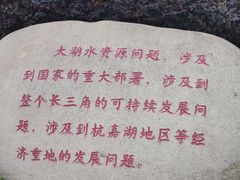 太湖水资源问题，涉及
到国家的重大部署，涉及到
整个长三角的可持续发展问
题，涉及到杭嘉湖地区等经
济重地的发展问题。